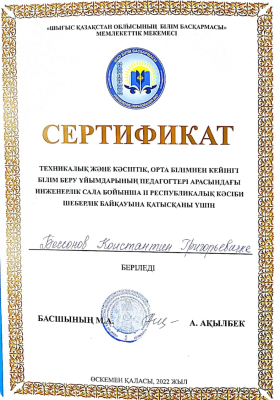 «ШЫҒЫС ҚАЗАҚСТАН ОБЛЫСЫНЫҢ БІЛІМ БАСҚАРМАСЫ»
МЕМЛЕКЕТТІК МЕКЕМЕСІ
СЕРТИФИКАТ
ТЕХНИКАЛЫҚ ЖӘНЕ КӘСІПТІК, ОРТА БІЛІМНЕН КЕЙІНГІ
БІЛІМ БЕРУ ҰЙЫМДАРЫНЫҢ ПЕДАГОГТЕРІ АРАСЫНДАҒЫ
ИНЖЕНЕРЛІК САЛА БОЙЫНША ІІ РЕСПУБЛИКАЛЫҚ КӘСІБИ
ШЕБЕРЛІК БАЙҚАУЫНА ҚАТЫСҚАНЫ ҮШІН
Бессонов Константин Григорьевичке
БЕРІЛЕДІ
БАСШЫНЫҢ М.А. А. АҚЫЛБЕК
ӨСКЕМЕН ҚАЛАСЫ, 2022 ЖЫЛ